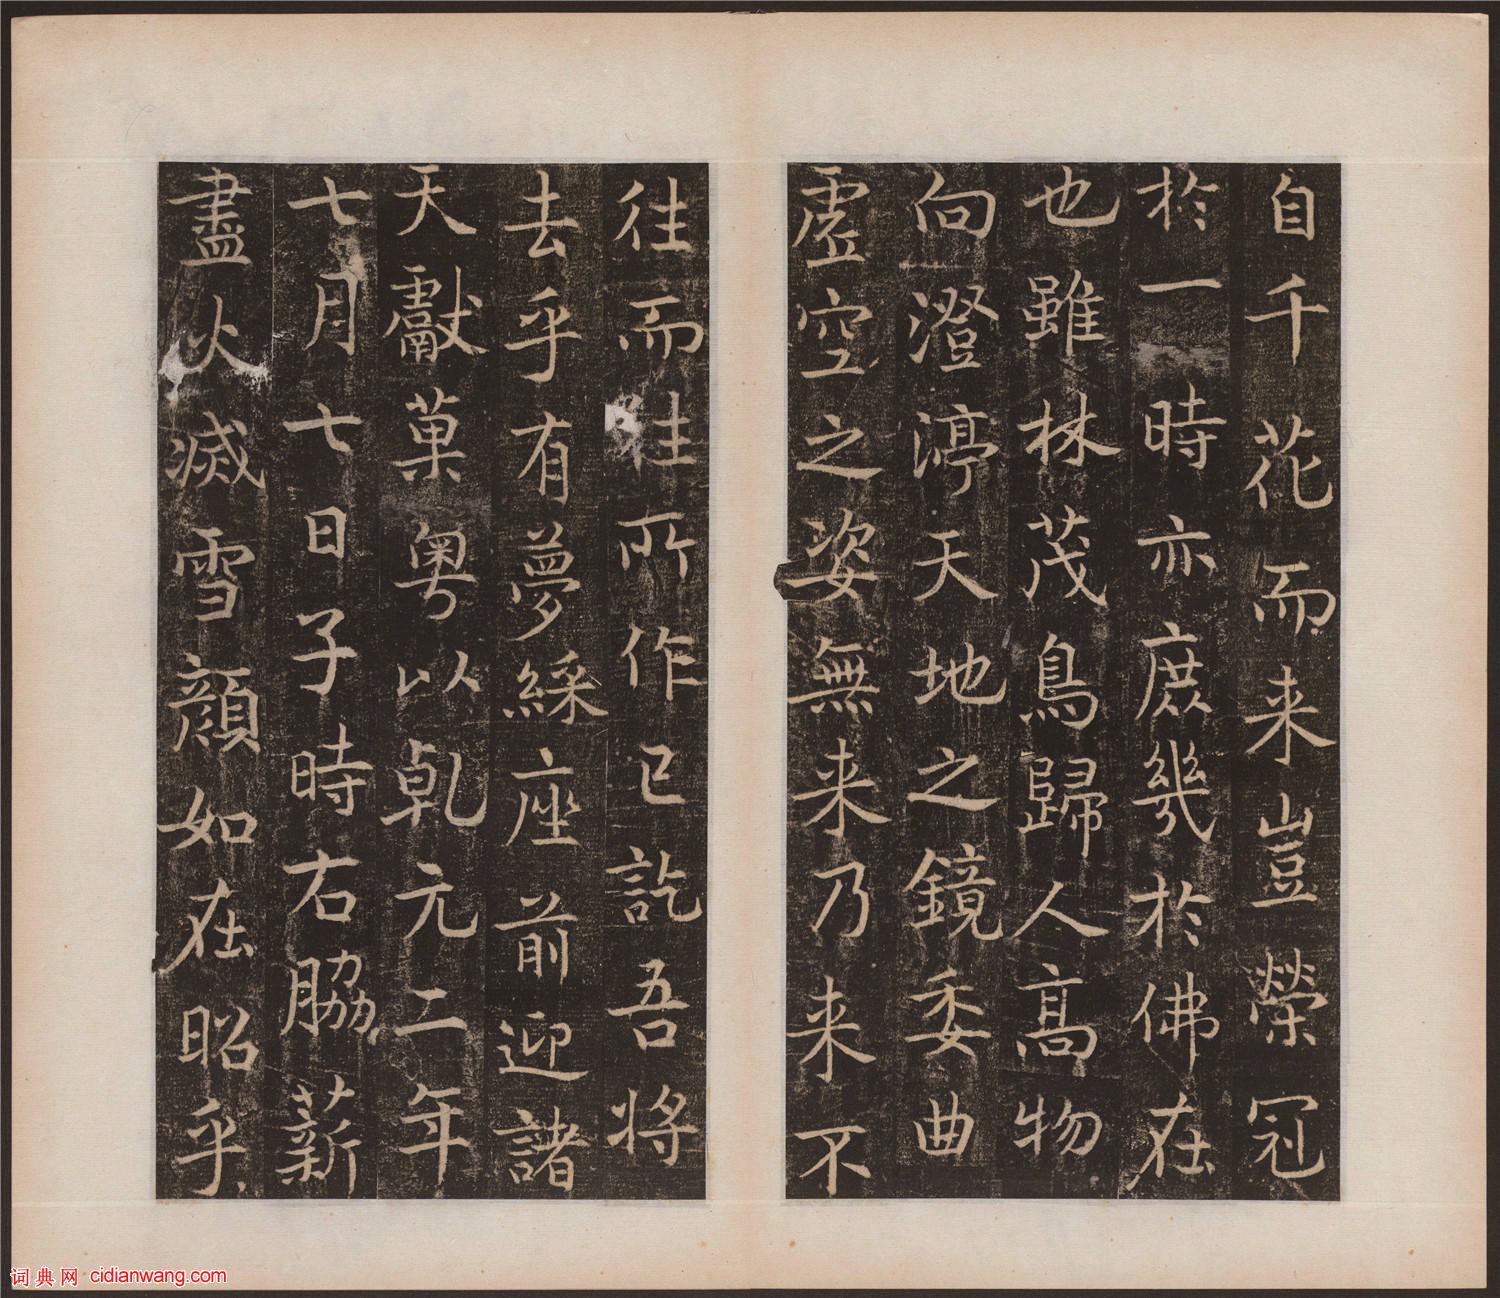 自千花而来豈榮冠
於一時亦庶幾於佛在
也雖林茂鳥歸人高物
向澄渟天地之鏡委曲
虛空之姿無来乃来不
往而往所作已訖吾将
去乎有夢綵座前迎諸
天獻菓粤以乹元二年
七月七日子時右脇薪
盡火滅雪顏如在昭乎
词典网 cidianwang.com